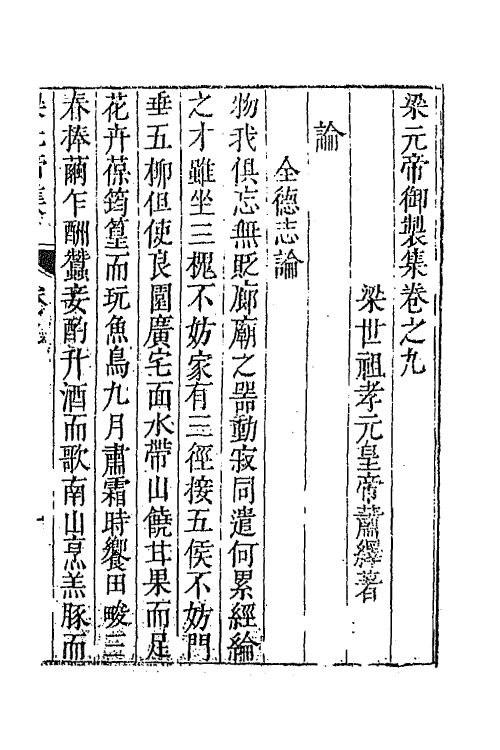 梁元帝御製集卷之九
梁世祖孝元皇帝蕭繹著
論
全德志論
物我俱忘無貶廊廟之器動寂同遣何累經綸
之才雖坐三槐不妨家有三徑接五侯不妨門
垂五柳但使良園廣宅面水帶山饒甘果而足
花卉葆筠篁而玩魚鳥九月肅霜時饗田畯三
春捧繭乍酬蠶妾酌升酒而歌南山烹羔豚而